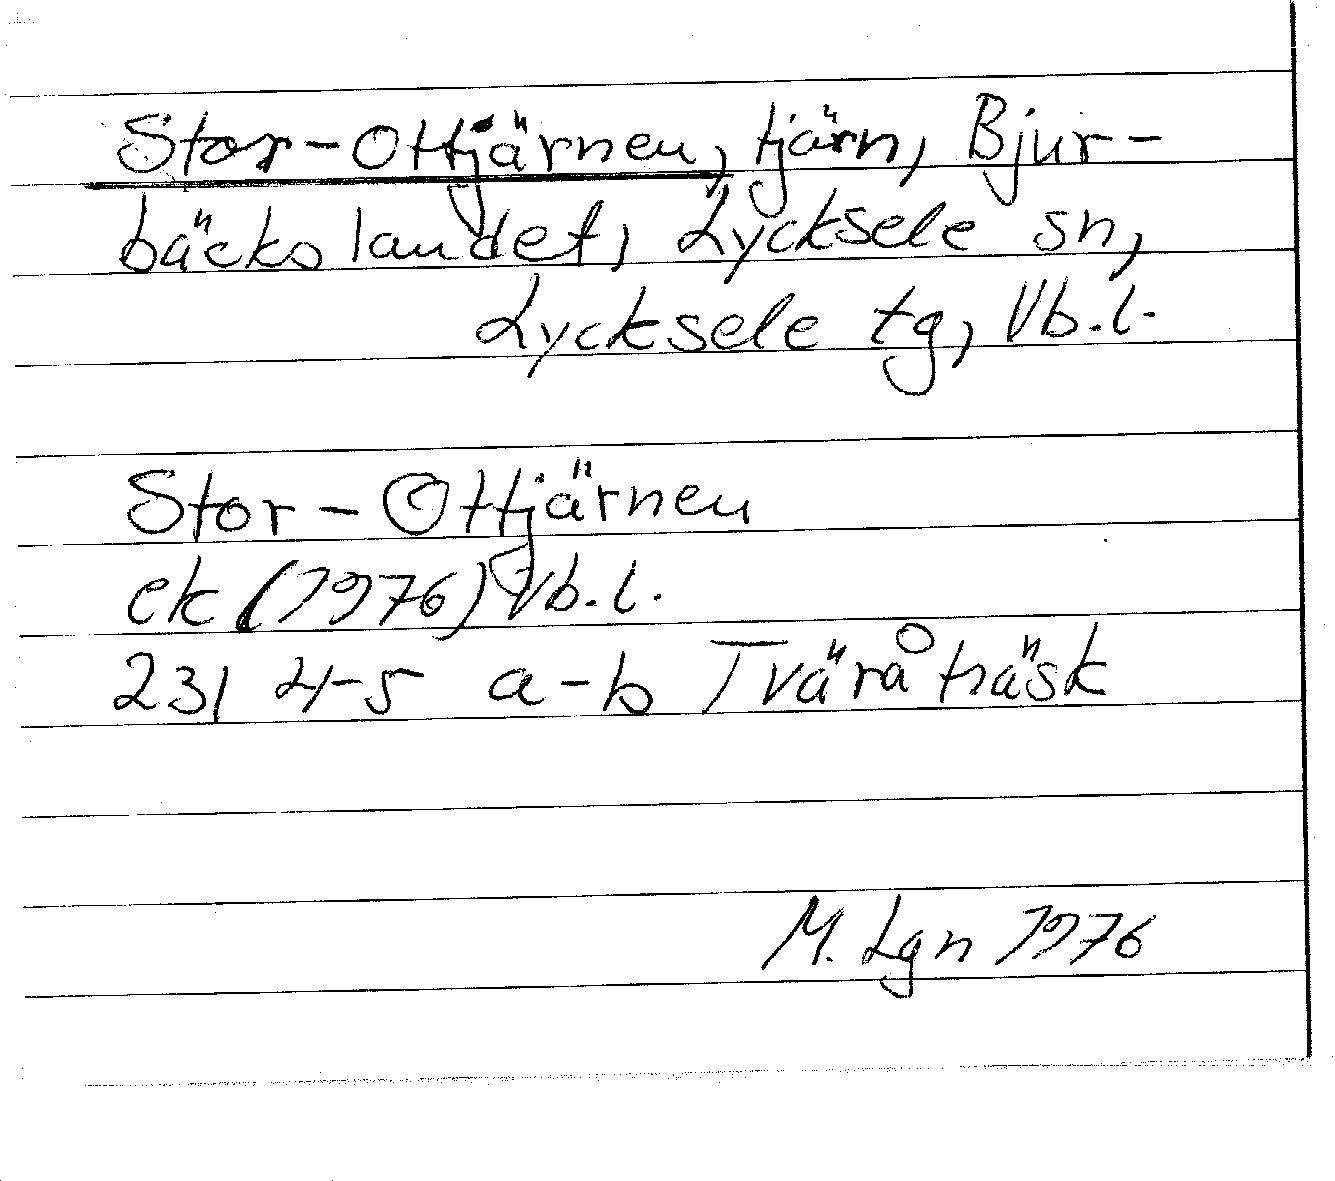 Stor-Ottjärnen, tjärn, Bjur-
bäckslandet, Lycksele sn,
Lycksele tg, Vb.l.
Stor-Ottjärnen
ek (1976) Vb.l.
231 4-5 a-b Tväråträsk
M. Lgn 1976